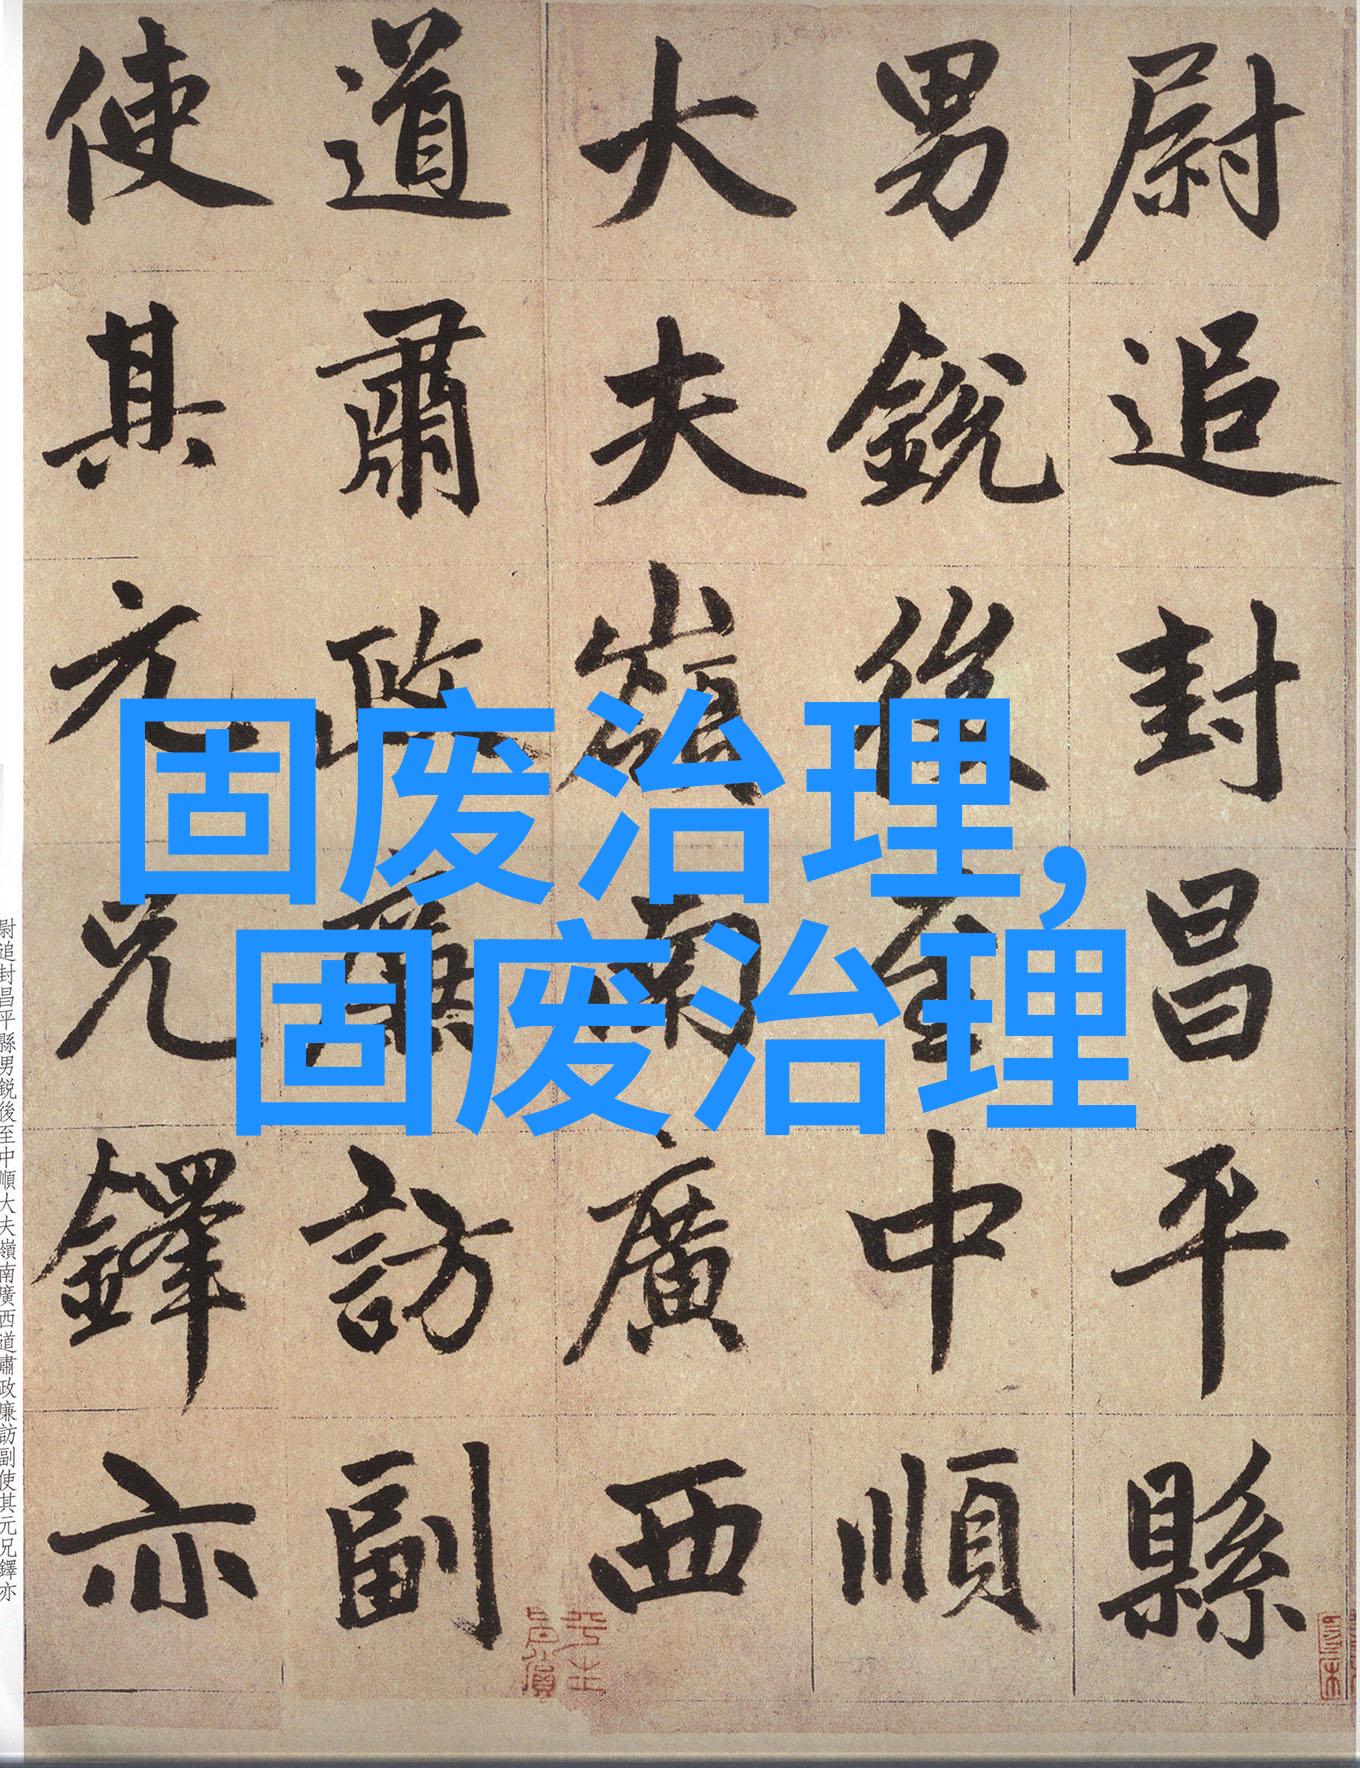 尉追封昌平縣
男銳後至中順
大夫嶺南廣西
道肅政廉訪副
使其元兄鐸亦
固废治理，
固废治理
尉追封昌平縣男銳後至中順大夫嶺南廣西道肅政廉訪副使其元兄鐸亦